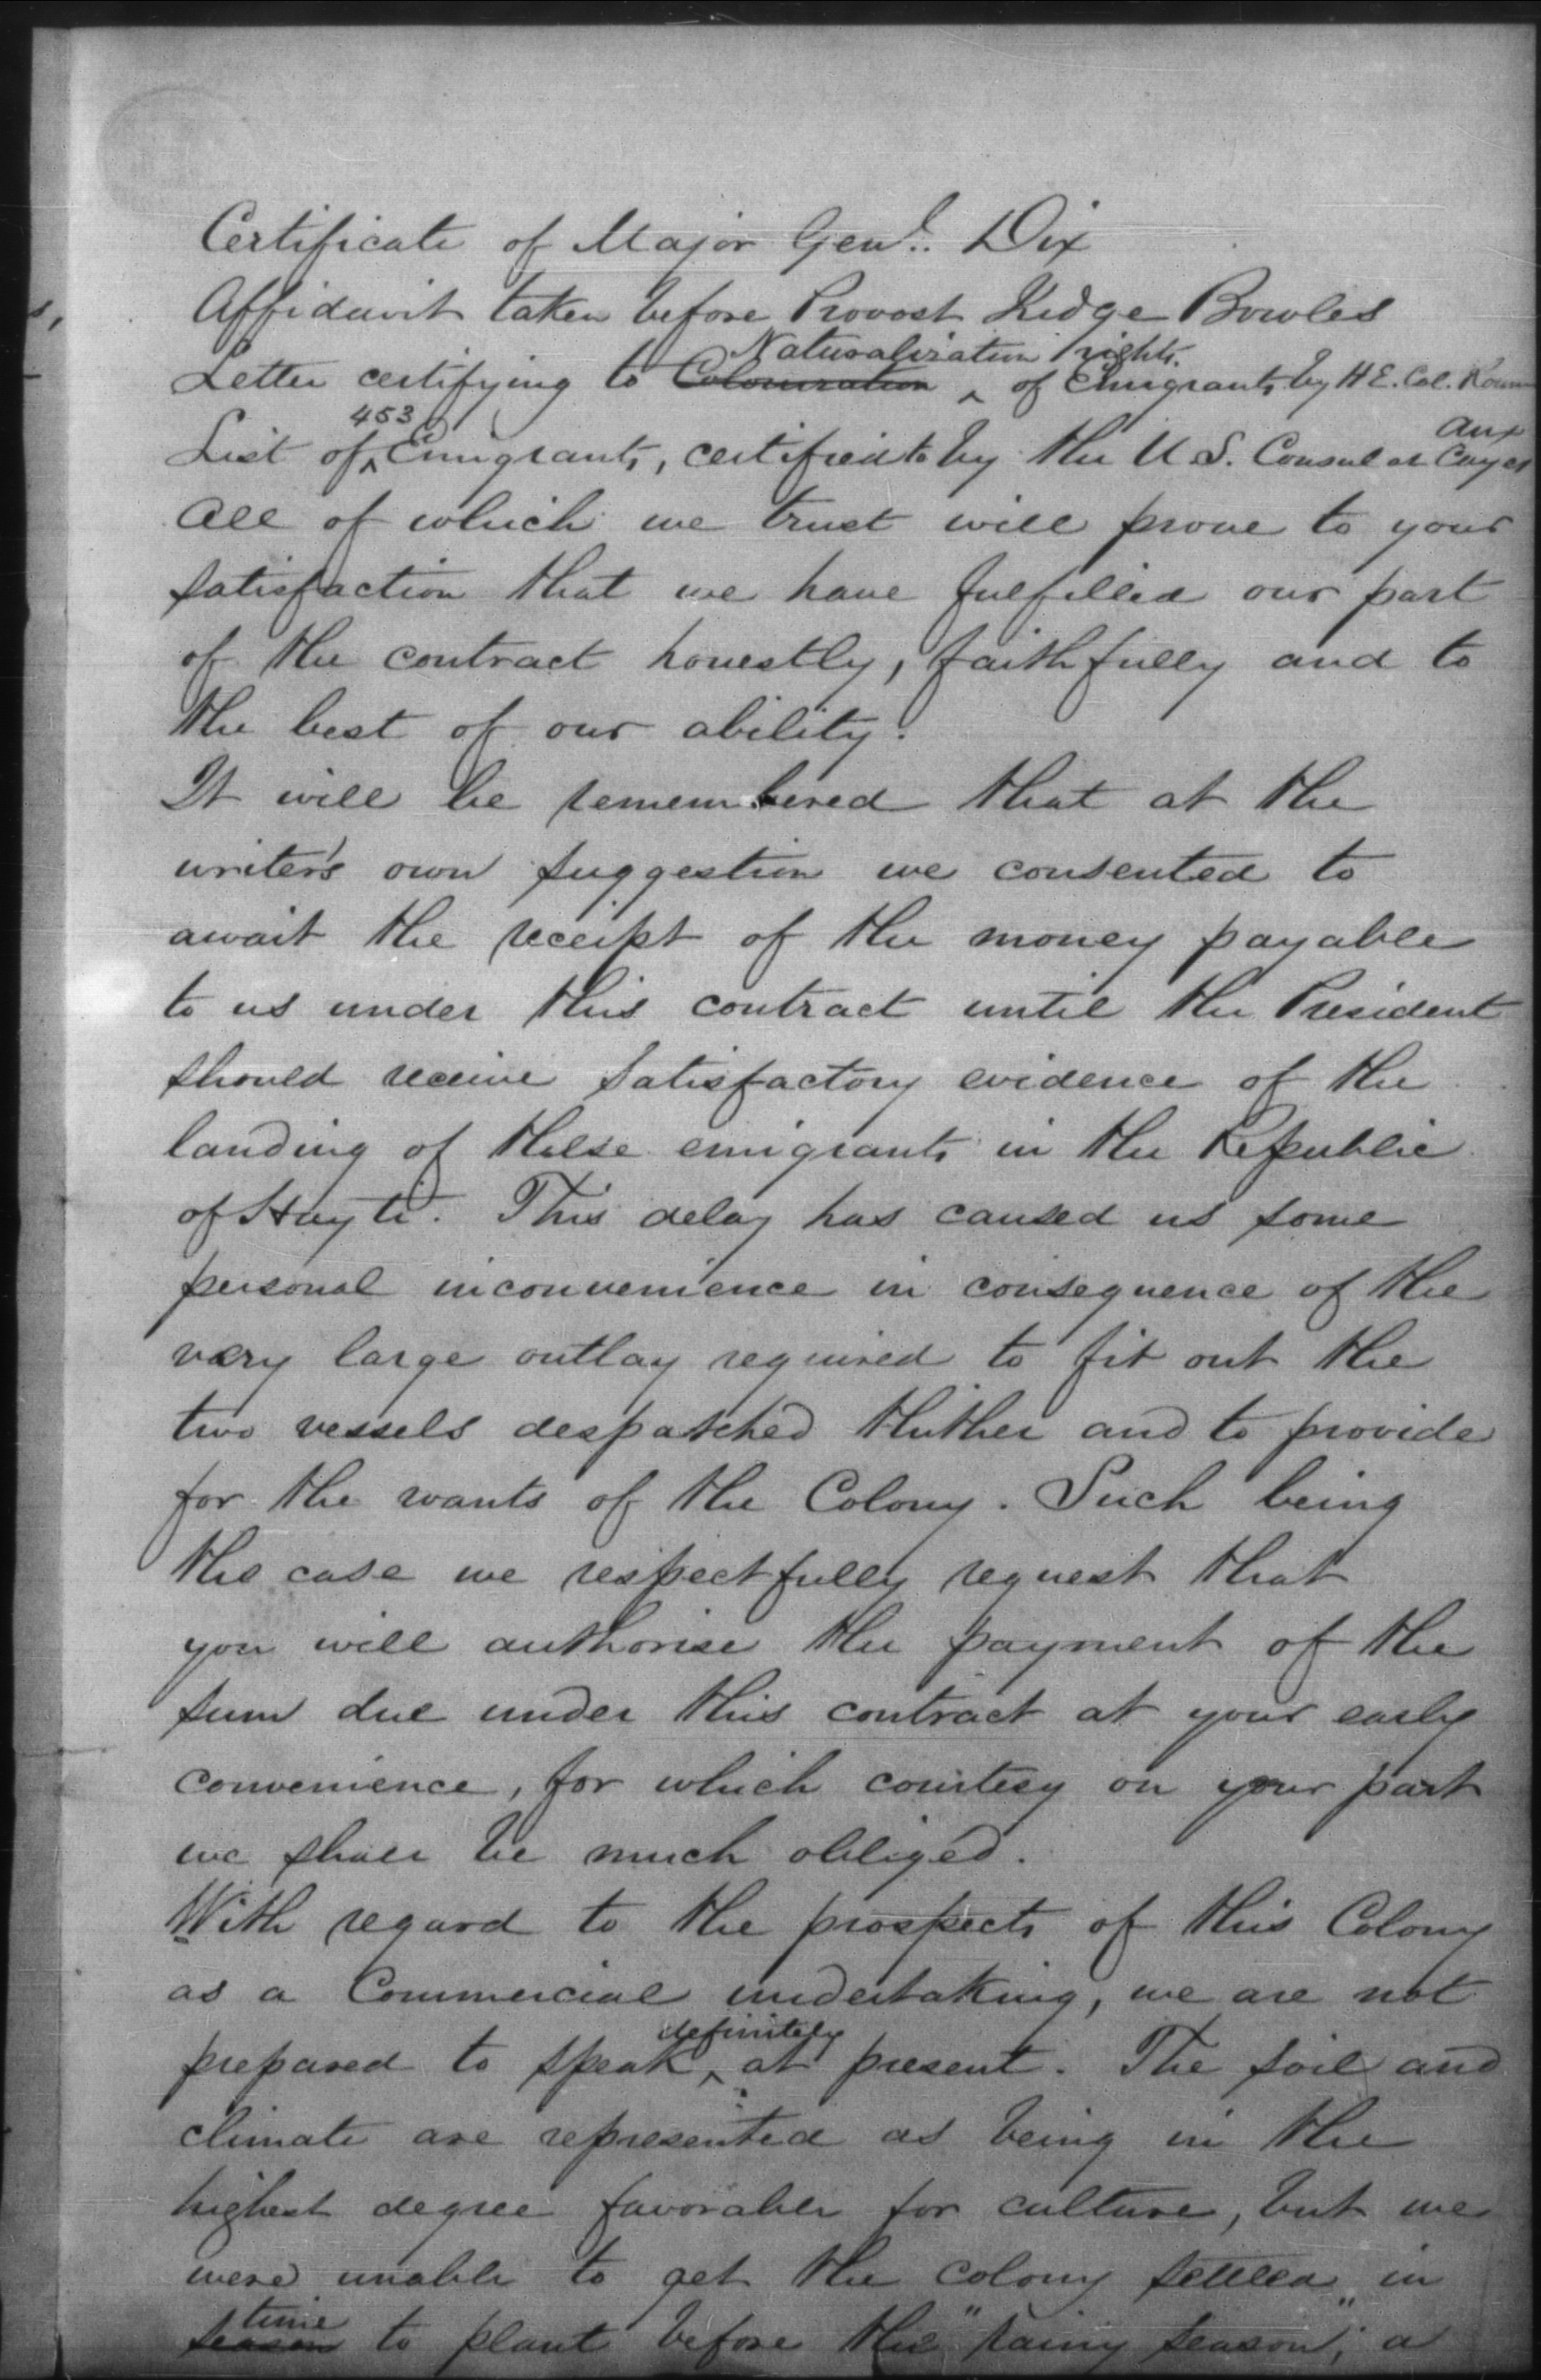 Certificate of Major Genl. Dix
Affidavit taken before Provost Judge Bowles
Naturalization rights.
Letter certifying to Colonization ^ of Emigrants by H E. Col.
453
List of ^ Emigrants, certified to by the U S. Consul at Aux Cayes
All of which we trust will prove to your
satisfaction that we have fulfilled our part
of the contract honestly, faithfully and to
the best of our ability.
It will be remembered that at the
writer's own suggestion we consented to
await the receipt of the money payable
to us under this contract until the President
should receive satisfactory evidence of the
landing of these emigrants in the Republic
of Hayti. This delay has caused us some
personal inconvenience in consequence of the
very large outlay required to fit out the
two vessels despatched thither and to provide
for the wants of the Colony. Such being
the case we respectfully request that
you will authorise the payment of the
sum due under this contract at your early
convenience, for which courtesy on your part
we shall be much obliged.
With regard to the prospects of this Colony
as a Commercial undertaking, we are not
definitely
prepared to speak ^ at present. The soil and
climate are represented as being in the
highest degree favorable for culture, but we
were unable to get the colony settled in
time
season to plant before the "rainy season"; a